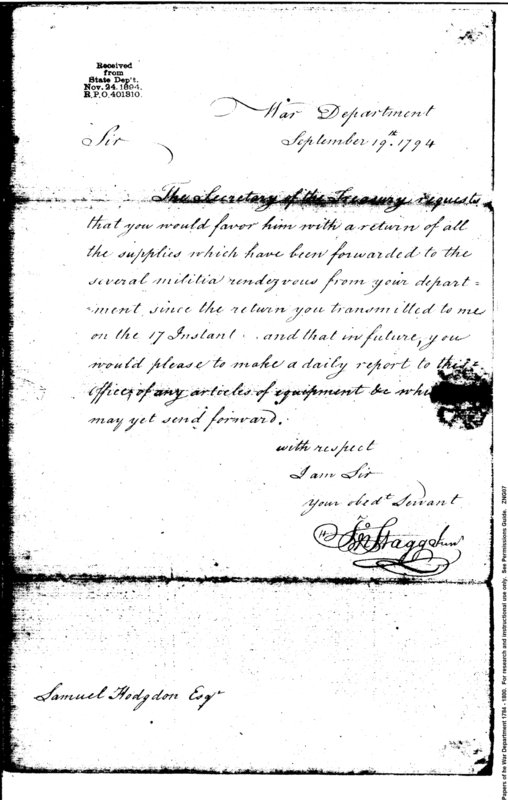 Received
from
State Dep't.
Nov. 24. 1894.
R.P.O. 401310.
War Department
September 19th. 1794
Sir
The Secretary of the Treasury requests
that you would favor him with a return of all
the supplies which have been forwarded to the
several militia rendezvous from your depart=
=ment, since the return you transmitted to me
on the 17 Instant. and that in future, you
would please to make a daily report to this
Office, of any articles of equipment &c
may yet send forward.
with respect
I am Sir
your obedt Servant
Jno Stagg Junr
Samuel Hodgdon Esqr
Papers of he War Department 1784 - 1800. For research and instructional use only. See Permissions Guide. ZNG07